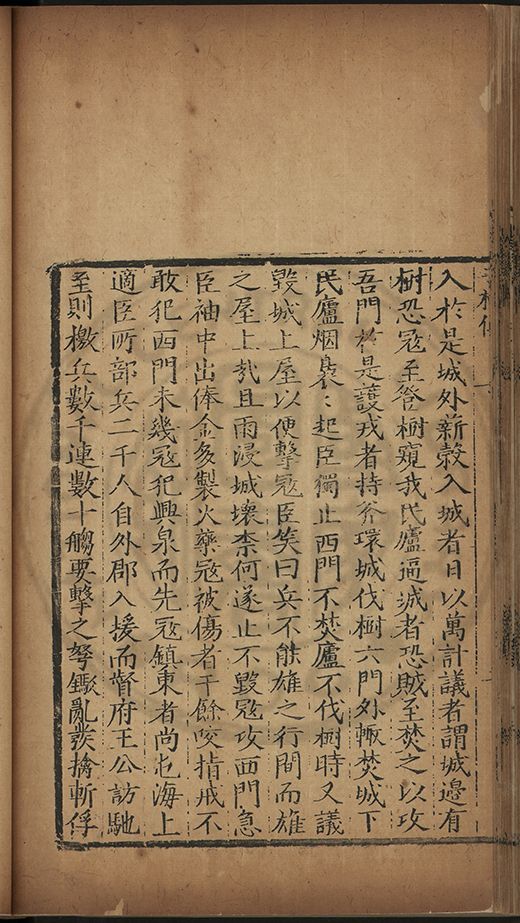 入於是城外薪穀入城者日以萬計議者謂城邊有
樹恐寇至登樹窺我民廬逼城者恐賊至焚之以攻
吾門於是護戎者持斧環城伐樹六門外輒焚城下
民廬烟裊〻起臣獨止西門不焚廬不伐樹時又議
毀城上屋以便擊寇臣笑曰兵不能雄之行間而雄
之屋上哉且雨浸城壞柰何遂止不毀寇攻西門急
臣袖中出俸金多製火藥寇被傷者千餘咬指戒不
敢犯西門未幾寇犯興泉而先寇鎮東者尚屯海上
適臣所部兵二千人自外郡入援而督府王公訪馳
至則檄兵數千連數十艘要擊之弩鏃亂發擒斬俘